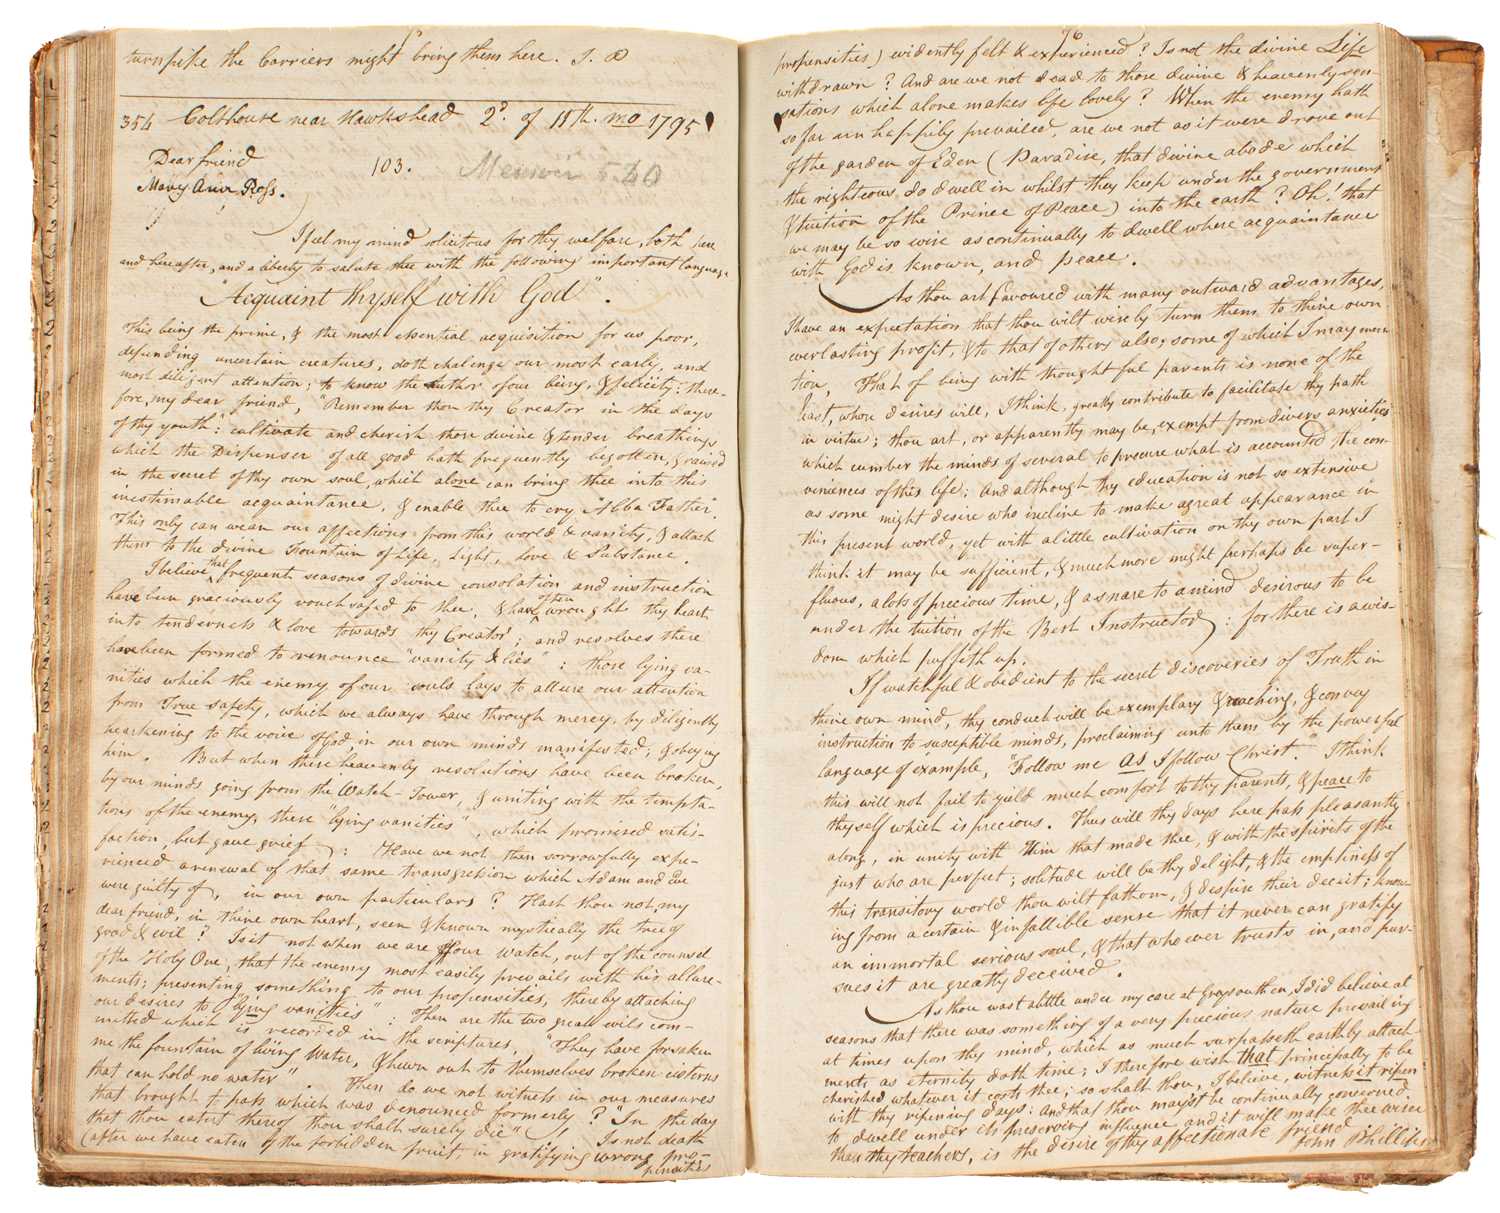 turnpike the Carriers might bring them here. J. D
354 Colthouse near Hawkshead 2d. of 11th. mo 1795
Dear friend 103. Memoir 5.40
Mary Ann Ross.
I feel my mind solicitous for thy welfare, both here
and hereafter, and a liberty to salute thee with the following important language
"Acquaint thyself with God".
This being the prime, & the most essential acquisition for us poor,
depending uncertain creatures, doth challenge our most early, and
most diligent attention; to know the Author of our being, & felicity: there-
fore, my dear friend, "Remember thou thy Creator in the days
of thy youth": cultivate and cherish those divine & tender breathings
which the Dispenser of all good hath frequently begotten, & raised
in the secret of thy own soul, which alone can bring thee into this
inestimable acquaintance, & enable thee to cry "Abba Father".
This only can wean our affections from this world & vanity, & attach
them to the divine Fountain of Life, Light, Love & Substance.
I believe that frequent seasons of divine consolation and instruction
have been graciously vouchsafed to thee, & have often wrought thy heart
into tenderness & love towards thy Creator; and resolves there
have been formed to renounce "vanity & lies": those lying va-
nities which the enemy of our souls lays to allure our attention
from True safety, which we always have through mercy, by diligently
hearkening to the voice of God in our own minds manifested; & obeying
him. But when these heavenly resolutions have been broken,
by our minds going from the Watch-Tower, & uniting with the tempta-
tions of the enemy, these "lying vanities", which promised satis-
faction, but gave grief: Have we not then sorrowfully expe-
rienced a renewal of that same transgression which Adam and Eve
were guilty of, in our own particulars? Hast thou not, my
dear friend, in thine own heart, seen & known mystically the tree of
good & evil? Is it not when we are off our watch, out of the counsel
of the Holy One, that the enemy most easily prevails with his allure-
ments; presenting something to our propensities, thereby attaching
our desires to "lying vanities": Then are the two great evils com-
mitted which is recorded in the scriptures, "They have forsaken
me the fountain of living Water, & hewn out to themselves broken cisterns
that can hold no water". Then do we not witness in our measures
that brought to pass which was denounced formerly? "In the day
that thou eatest thereof thou shalt surely die" Is not death
(after we have eaten of the forbidden fruit in gratifying wrong pro-
pensities
76
propensities) evidently felt & experienced? Is not the divine Life
withdrawn? And are we not dead to those divine & heavenly sen-
sations which alone makes life lovely? When the enemy hath
so far unhappily prevailed, are we not as it were drove out
of the garden of Eden (Paradise, that divine abode which
the righteous do dwell in whilst they keep under the government
& tuition of the Prince of Peace) into the earth? Oh! that
we may be so wise as continually to dwell where acquaintance
with God is known, and peace.
As thou art favoured with many outward advantages,
I have an expectation that thou wilt wisely turn them to thine own
everlasting profit, & to that of others also; some of which I may men-
tion, That of being with thoughtful parents is none of the
least, whose desires will, I think, greatly contribute to facilitate thy path
in virtue; thou art, or apparently may be, exempt from divers anxieties
which cumber the minds of several to procure what is accounted the con-
veniences of this life; And although thy education is not so extensive
as some might desire who incline to make a great appearance in
this present world, yet with a little cultivation on thy own part I
think it may be sufficient, & much more might perhaps be super-
fluous, a loss of precious time, & a snare to a mind desirous to be
under the tuition of the Best Instructor: for there is a wis-
dom which puffeth up.
If watchful & obedient to the secret discoveries of Truth in
thine own mind, thy conduct will be exemplary & reaching, & convey
instruction to susceptible minds, proclaiming unto them by the powerful
language of example, "Follow me as I follow Christ." I think
this will not fail to yield much comfort to thy parents, & peace to
thyself which is precious. Thus will thy days here pass pleasantly
along, in unity with Him that made thee, & with the spirits of the
just who are perfect; solitude will be thy delight, & the emptiness of
this transitory world thou wilt fathom, & despise their deceit; know-
ing from a certain & infallible sense that it never can gratify
an immortal serious soul, & that whoever trusts in, and pur-
sues it are greatly deceived.
As thou wast a little under my care at Graysouthen, I did believe at
seasons that there was something of a very precious nature prevailing
at times upon thy mind, which as much surpasseth earthly attach-
ments as eternity doth time; I therefore wish that principally to be
cherished whatever it costs thee; so shalt thou, I believe, witness it ripen
with thy ripening days: And that thou mayst be continually concerned
to dwell under its preserving influence, and it will make thee wiser
than thy teachers, is the desire of thy affectionate friend
John Phillips